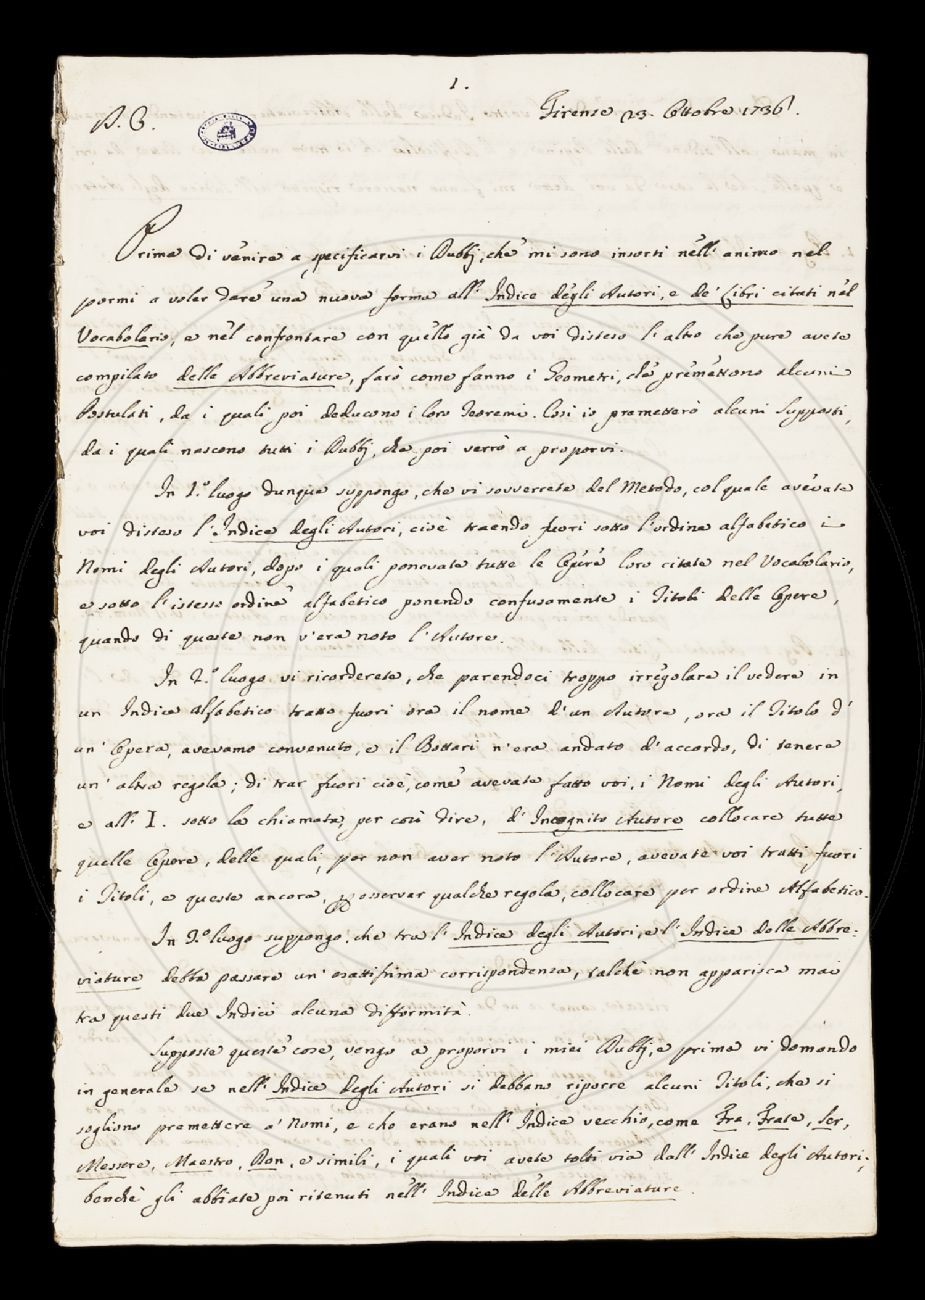 1.
Firenze 23. Ottobre 1736.
B. B.
Prima di venire a specificarvi i Dubbj, che mi sono insorti nell' animo nel
pormi a voler dare una nuova forma all' Indice degli Autori, e de' Libri citati nel
Vocabolario, e nel confrontare con quello già da voi disteso l' altro che pure avete
compilato delle Abbreviature, farò come fanno i Geometri, che premettono alcuni
Postulati, da i quali poi deducono i loro Teoremi. Così io premetterò alcuni Supposti,
da i quali nascono tutti i Dubbj, che poi verrò a proporvi.
In 1.º luogo dunque suppongo, che vi sovverrete del Metodo, col quale avevate
voi disteso l' Indice degli Autori, cioè traendo fuori sotto l' ordine alfabetico i
Nomi degli Autori, dopo i quali ponevate tutte le Opere loro citate nel Vocabolario,
e sotto l' istesso ordine alfabetico ponendo confusamente i Titoli delle Opere,
quando di queste non v' era noto l' Autore.
In 2.º luogo vi ricorderete, che parendoci troppo irregolare il vedere in
un Indice alfabetico tratto fuori ora il nome d' un Autore, ora il Titolo d'
un' Opera, avevamo convenuto, e il Bottari n' era andato d' accordo, di tenere
un' altra regola; di trar fuori cioè, come avevate fatto voi, i Nomi degli Autori,
e all' I. sotto la chiamata, per così dire, d' Incognito Autore collocare tutte
quelle Opere, delle quali, per non aver noto l' Autore, avevate voi tratti fuori
i Titoli, e queste ancora, per osservar qualche regola, collocare per ordine Alfabetico.
In 3.º luogo suppongo, che tra l' Indice degli Autori, e l' Indice delle Abbre-
viature debba passare un' esattissima corrispondenza, talchè non apparisca mai
tra questi due Indici alcuna difformità.
Supposte queste cose, vengo a proporvi i miei Dubbj, e prima vi domando
in generale se nell' Indice degli Autori si debbano riporre alcuni Titoli, che si
sogliono premettere a' Nomi, e che erano nell' Indice vecchio, come Fra, Frate, Ser,
Messere, Maestro, Don, e simili, i quali voi avete tolti via dall' Indice degli Autori,
benchè gli abbiate poi ritenuti nell' Indice delle Abbreviature.